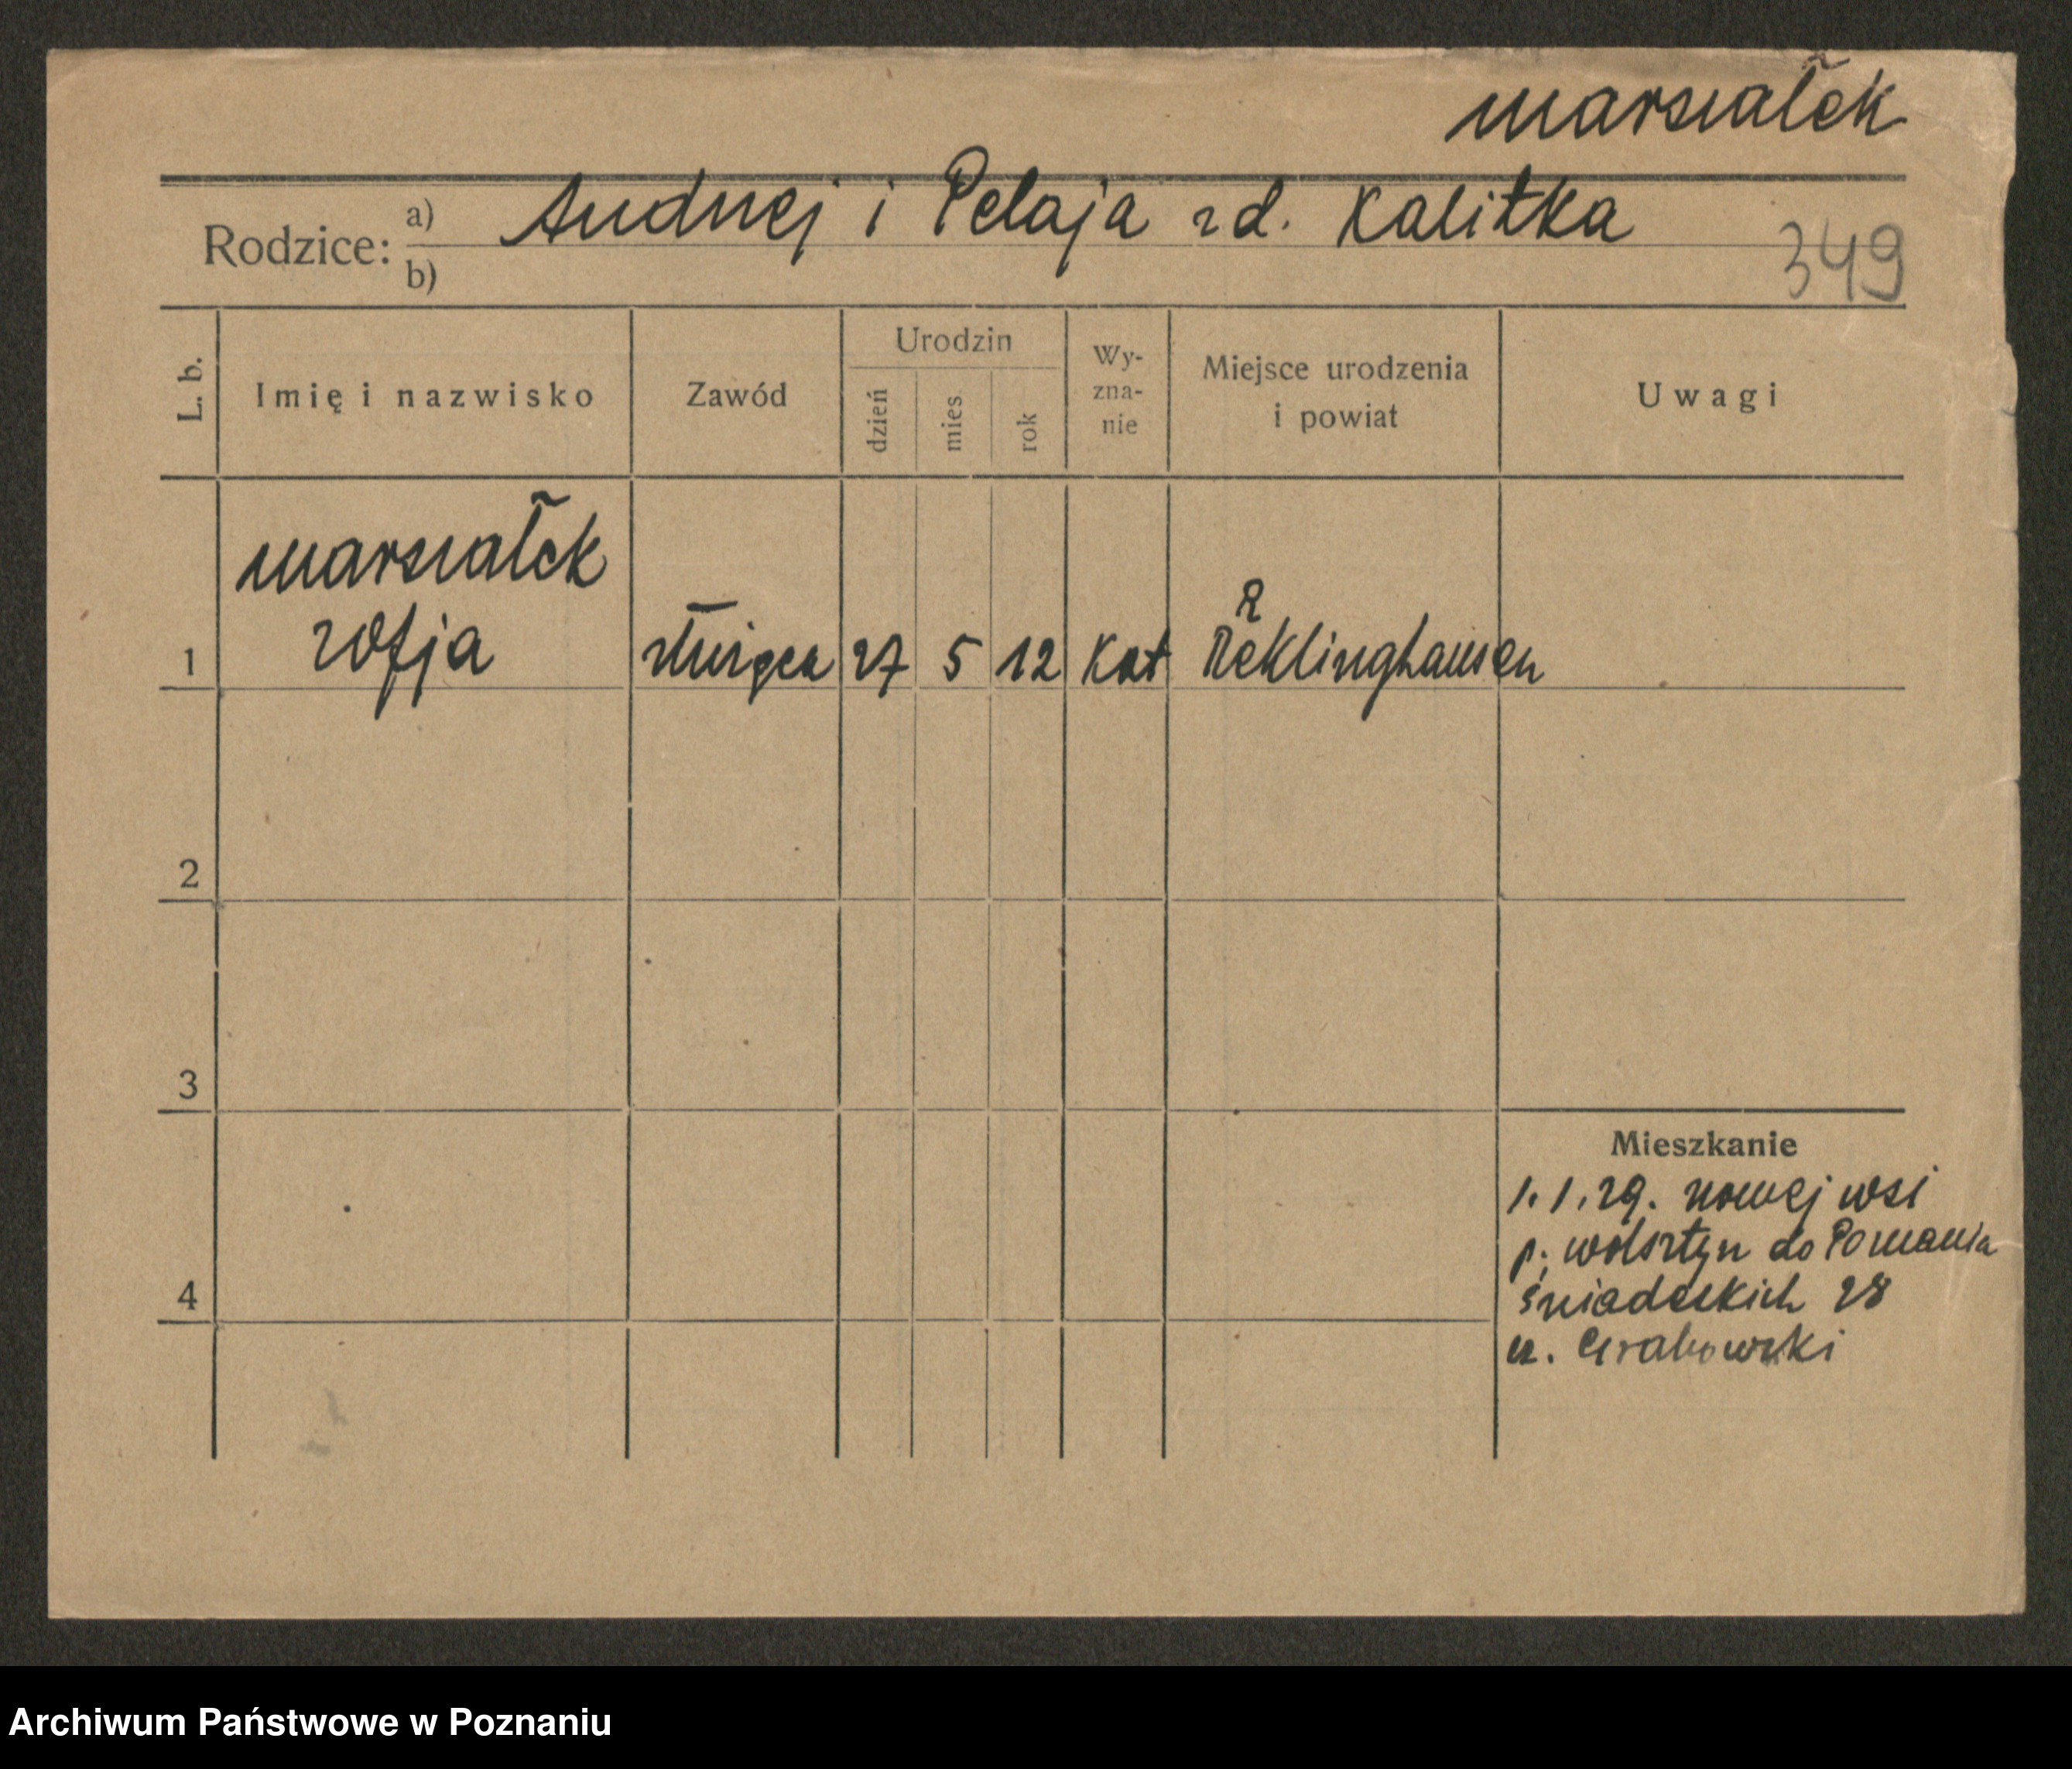 Marszałek
Rodzice: a) Andrzej i Pelaja zd. Kalitka
b)
349
L. b.
Imię i nazwisko
Zawód
Urodzin
dzień
mies.
rok
Wy-
zna-
nie
Miejsce urodzenia
i powiat
Uwagi
Marszałek
R
1 Zofja służąca 27 5 12 Kat Reklinghausen
2
3
Mieszkanie
1.1.29. Nowej wsi
p. Wolsztyn do Poznania
4 Śniadeckich 28
u. Grabowski
Archiwum Państwowe w Poznaniu